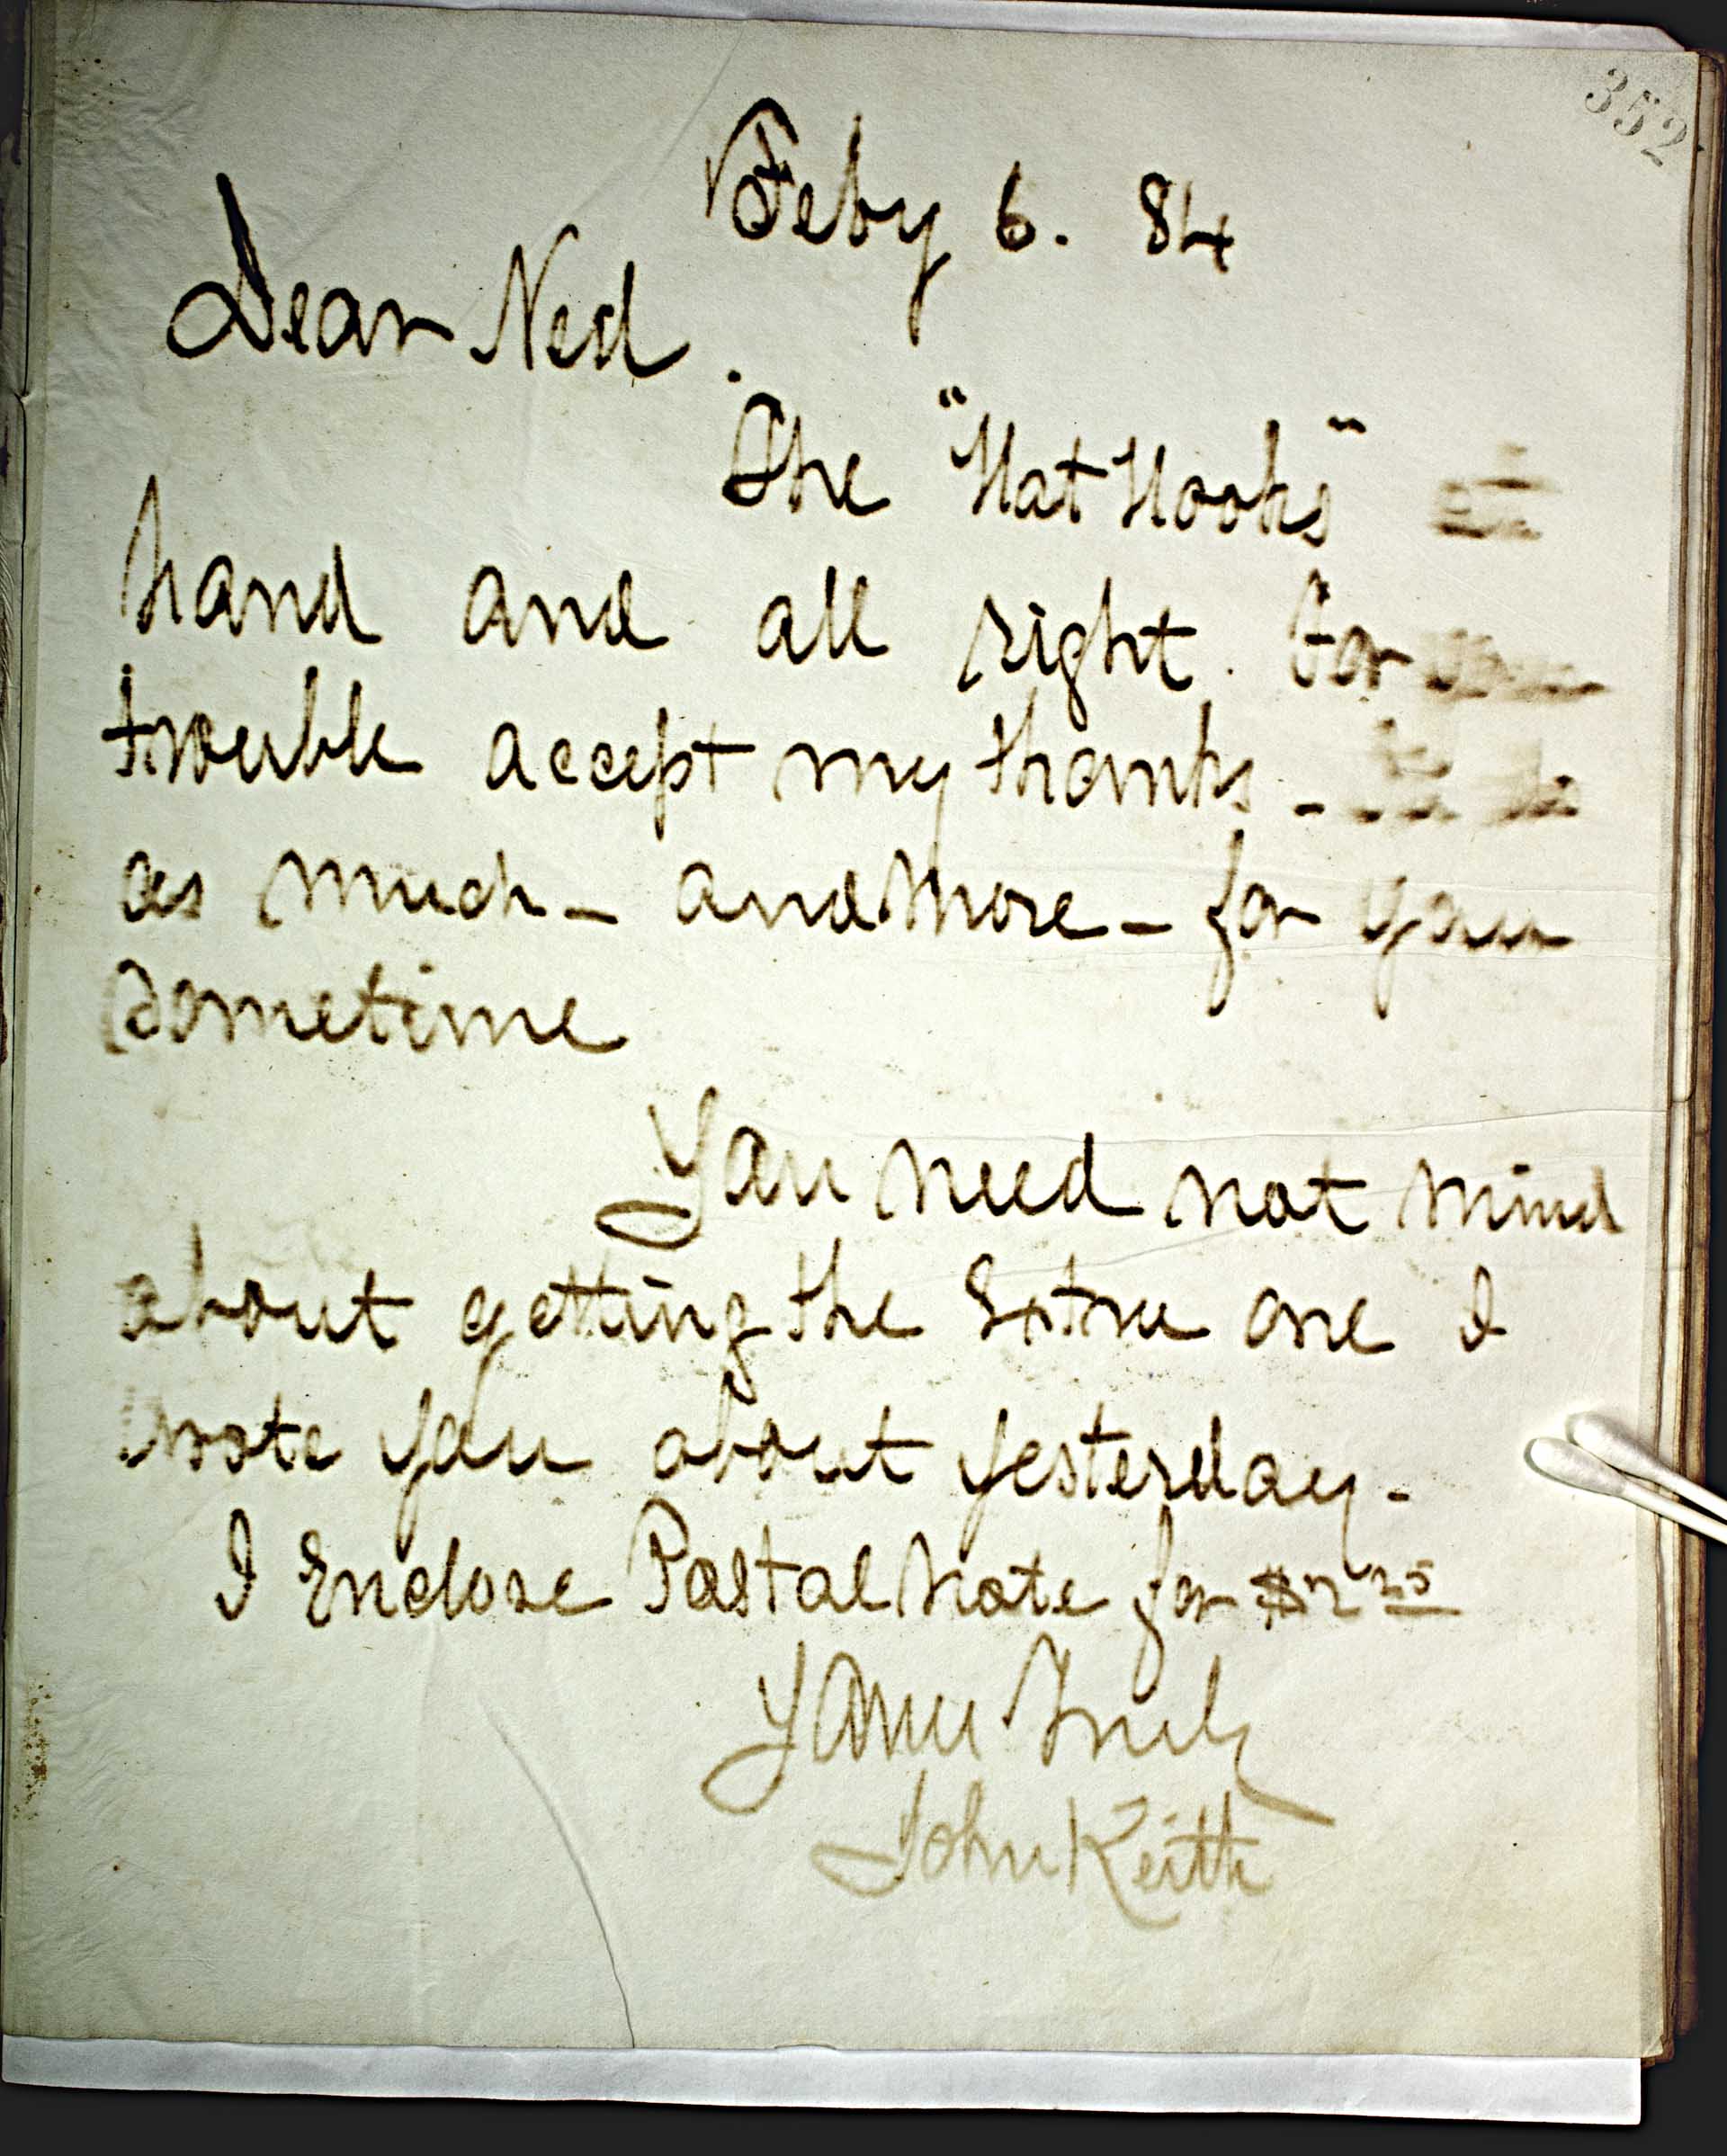 352
Feby 6. 84
Dear Ned.
The "Hat Hooks"
hand and all right. For
trouble accept my thanks -
as much - and more - for you
sometime
You need not mind
about getting the Extra one I
wrote you about yesterday -
I Enclose Postal Note for $2 25
Yours Truly
John Keith